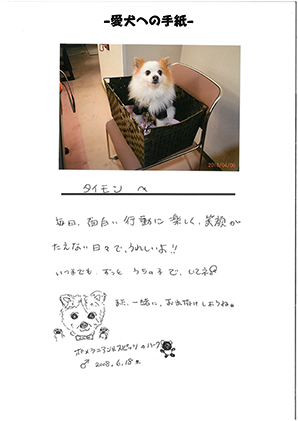 -愛犬への手紙-
2008/06/06
タイモン へ
毎日、面白い行動に楽しく、笑顔が
たえない日々で、うれしいよ!!
いつまでも、ずっとうちの子で、してネ
また、一緒に、お出かけしようね。
ポメラニアン&スピッツのハーフ
♂ 2008.6.18生